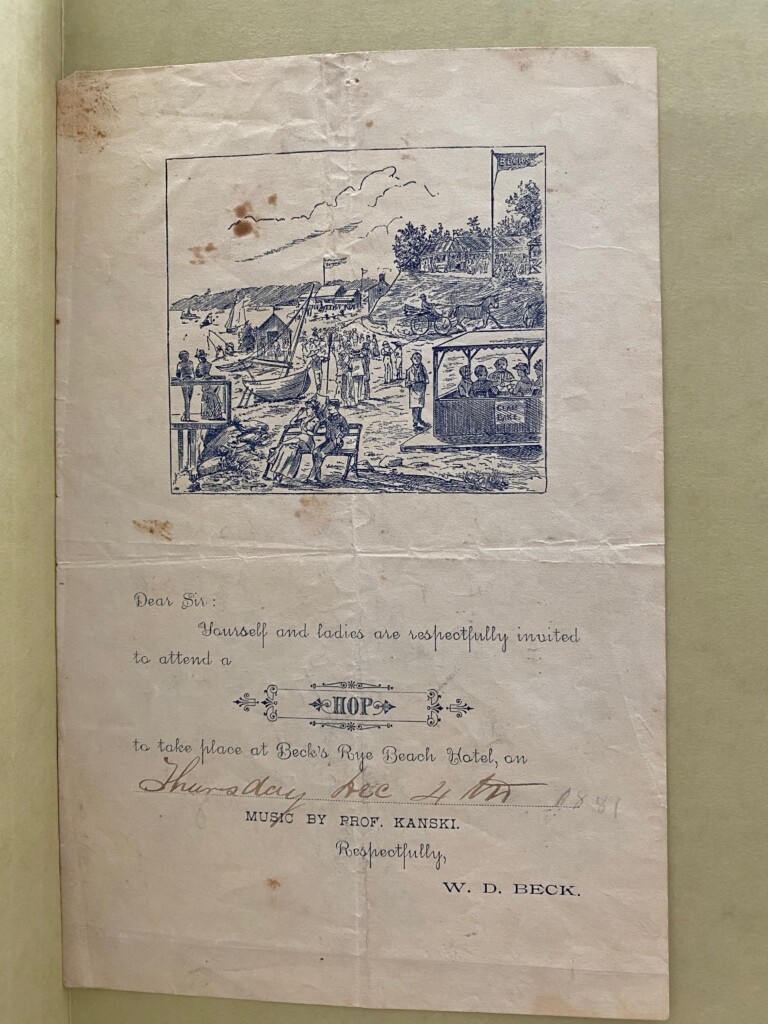 BECK'S
CLAM
BAKE
Dear Sir:
Yourself and ladies are respectfully invited
to attend a
HOP
to take place at Beck's Rye Beach Hotel, on
Thursday Dec 4th 1881
MUSIC BY PROF. KANSKI.
Respectfully,
W. D. BECK.